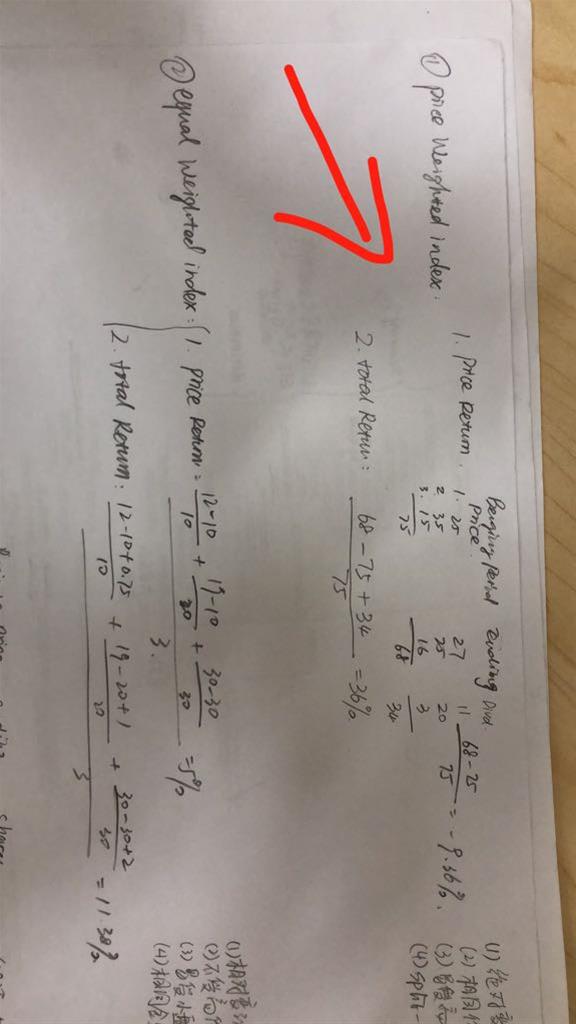 ① price weighted index.
1. price Return.
Beginning Period Price Ending Divd.
1. 25 27 11
2. 35 25 20
3. 15 16 3
75 68 34
68-75 / 75 = -9.36%.
2. total Return: 68-75+34 / 75 = 36%
② equal weighted index:
1. price Return = 12-10 / 10 + 19-10 / 20 + 30-30 / 30 / 3. = 5%
2. total Return: 12-10+0.75 / 10 + 19-20+1 / 20 + 30-30+2 / 30 / 3 = 11.38%
(1) 绝对
(2) 相同
(3)
(4) split
(1) 相对
(2) 不受
(3) 易受小盘
(4) 相同
shares